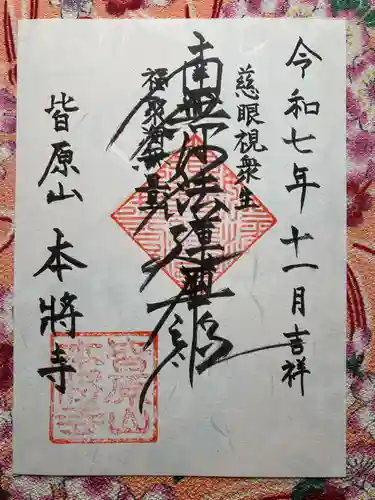 令和七年十一月吉祥
慈眼視衆生
南無妙法蓮華経
福聚海無量
皆原山 本將寺